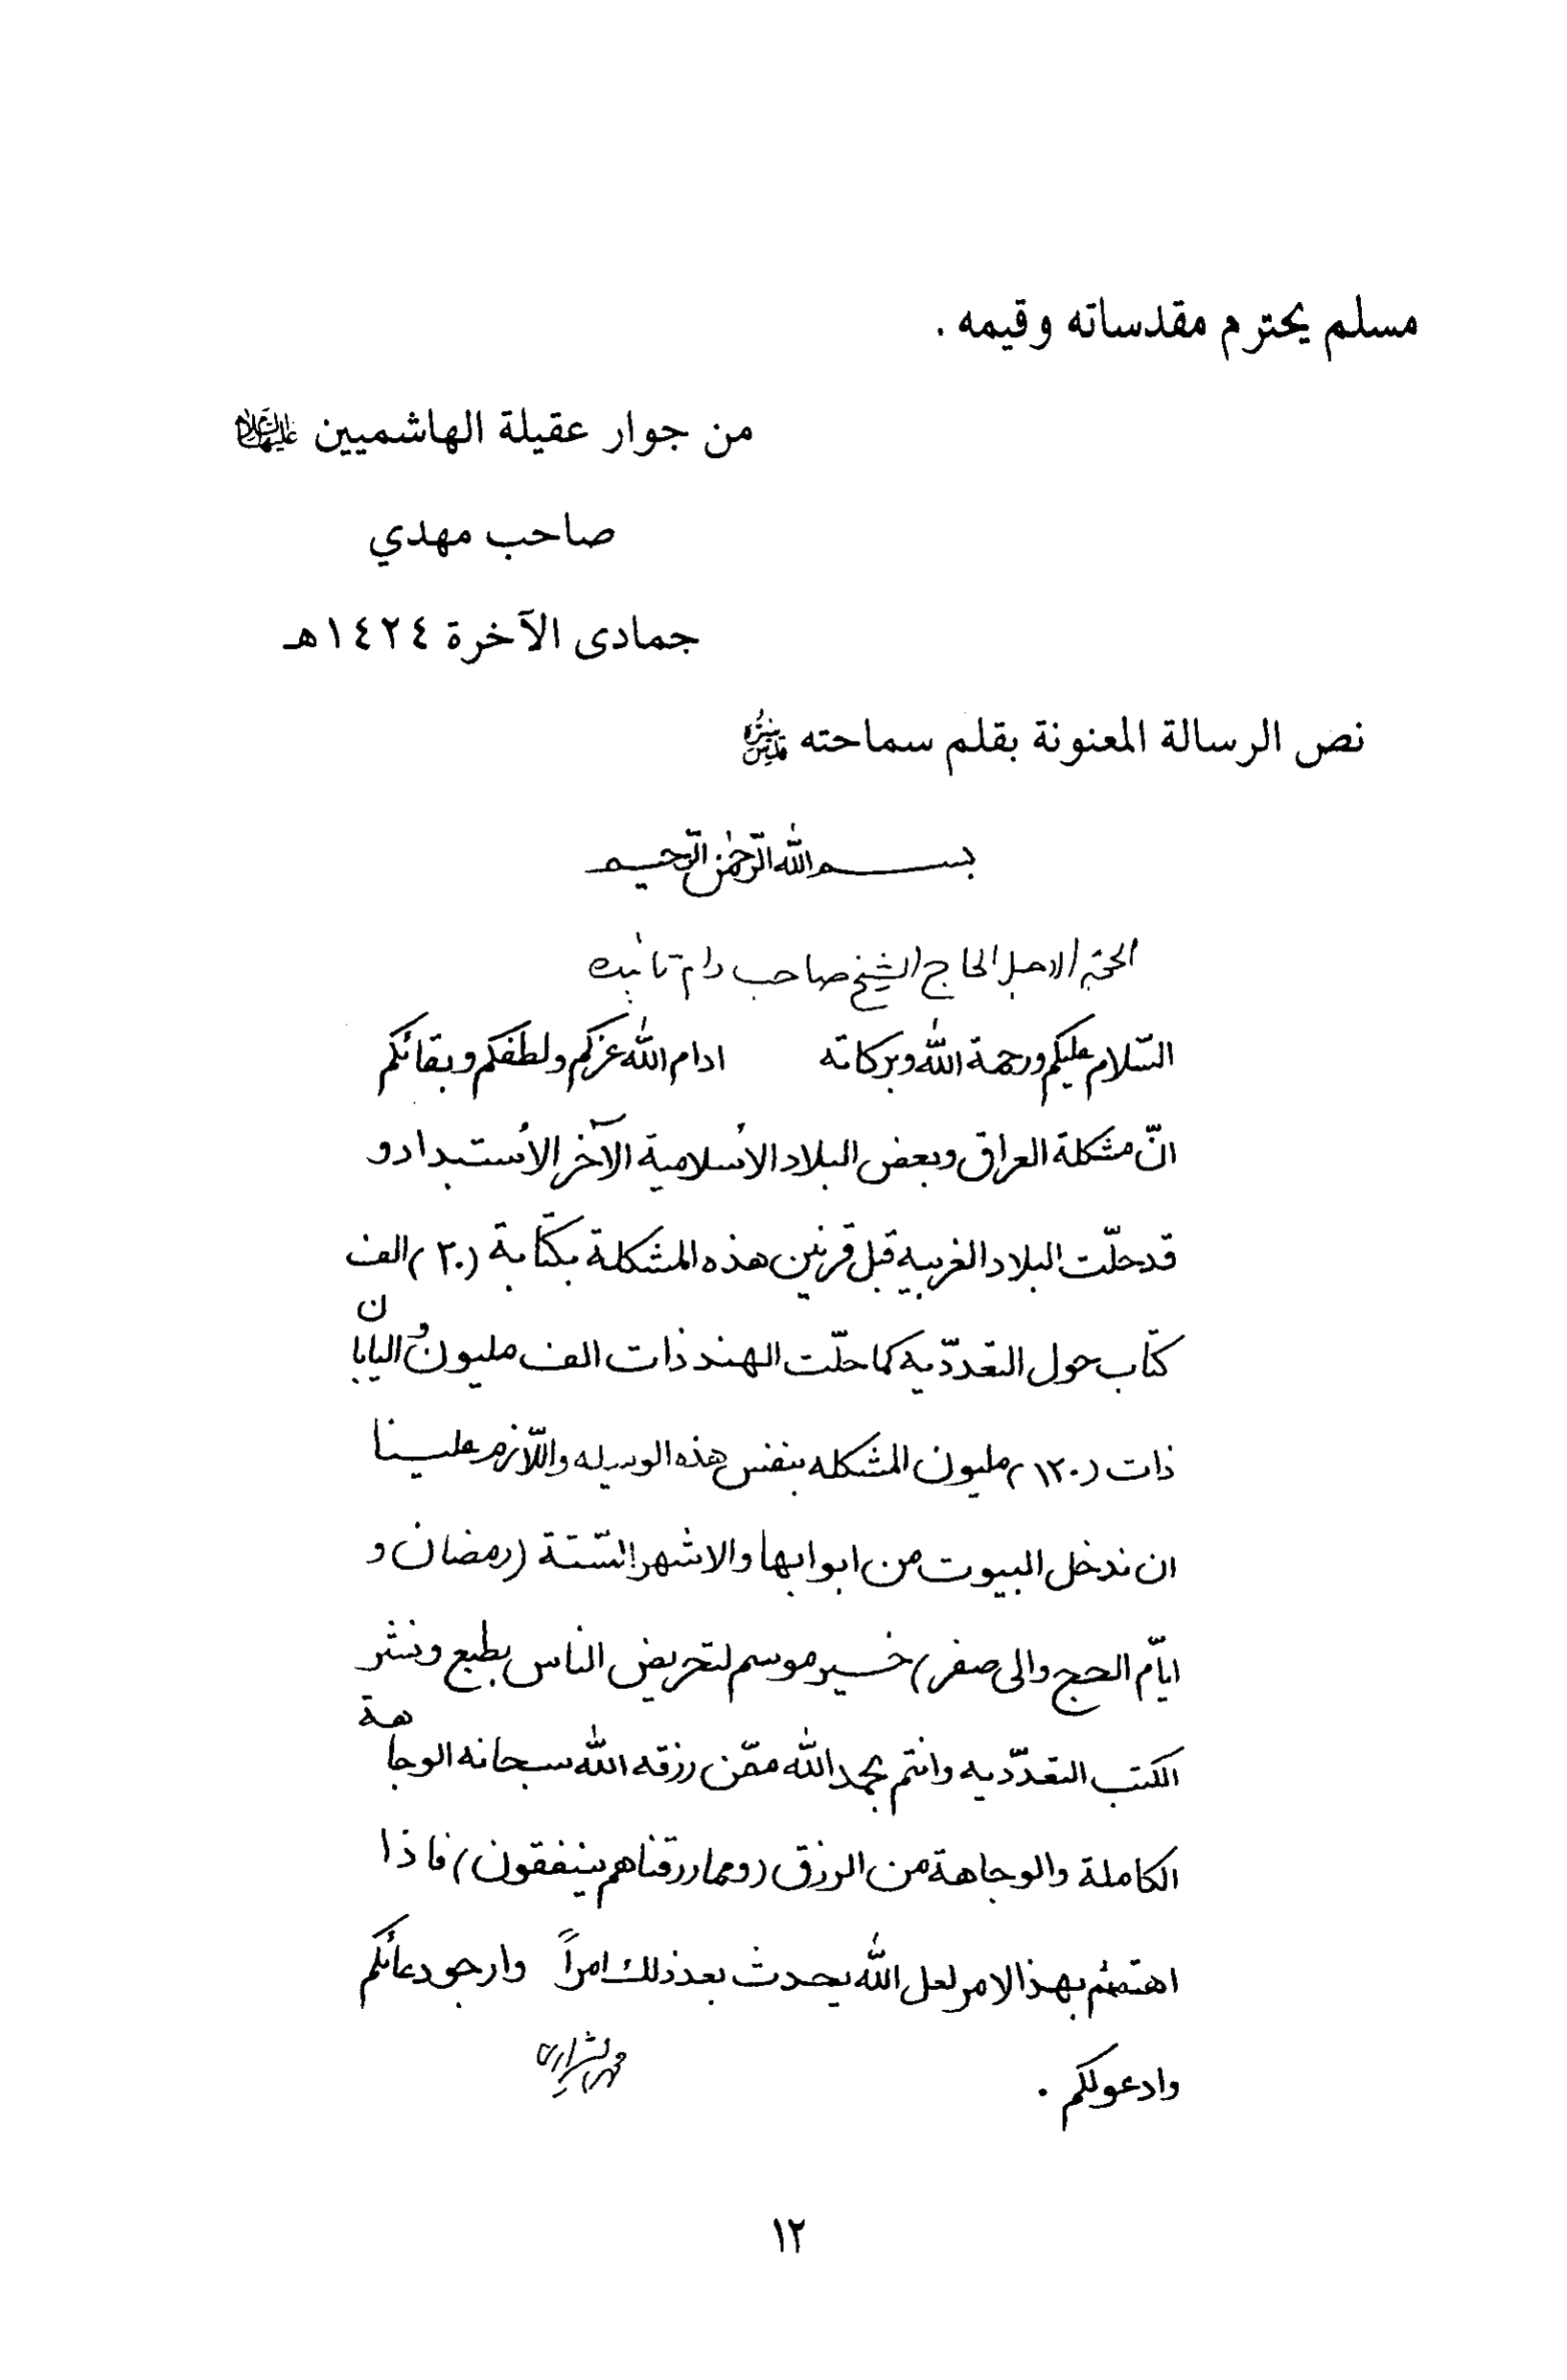 مسلم يحترم مقدساته وقيمه .
من جوار عقيلة الهاشميين عليها السلام
صاحب مهدي
جمادى الآخرة ١٤٢٤هـ
نص الرسالة المعنونة بقلم سماحته قدس سره
بسم الله الرحمٰن الرحيم
المحترم الاجل الحاج الشيخ صاحب دام تائيده
السّلام عليكم ورحمة الله وبركاته ادام الله عزكم ولطفكم وبقائكم
انّ مشكلة العراق وبعض البلاد الأسلامية الآخر الأستبداد و
قد حلّت البلاد الغربيه قبل قرنين هذه المشكلة بكتابة (٣٠) الف
كتاب حول التعدّديه كما حلّت الهند ذات الف مليون واليابان
ذات (١٢٠) مليون المشكله بنفس هذه الوسيله واللّازم علينا
ان ندخل البيوت من ابوابها والاشهر الستّة (رمضان و
ايّام الحج والى صفر) خير موسم لتحريض الناس بطبع ونشر
الكتب التعدّديه وانتم بحمد الله ممّن رزقه الله سبحانه الوجاهة
الكاملة والوجاهة من الرزق (ومما رزقناهم ينفقون) فاذا
اهتممتم بهذا الامر لعل الله يحدث بعد ذلك امراً وارجو دعائكم
وادعو لكم .
محمد الشيرازي
١٢